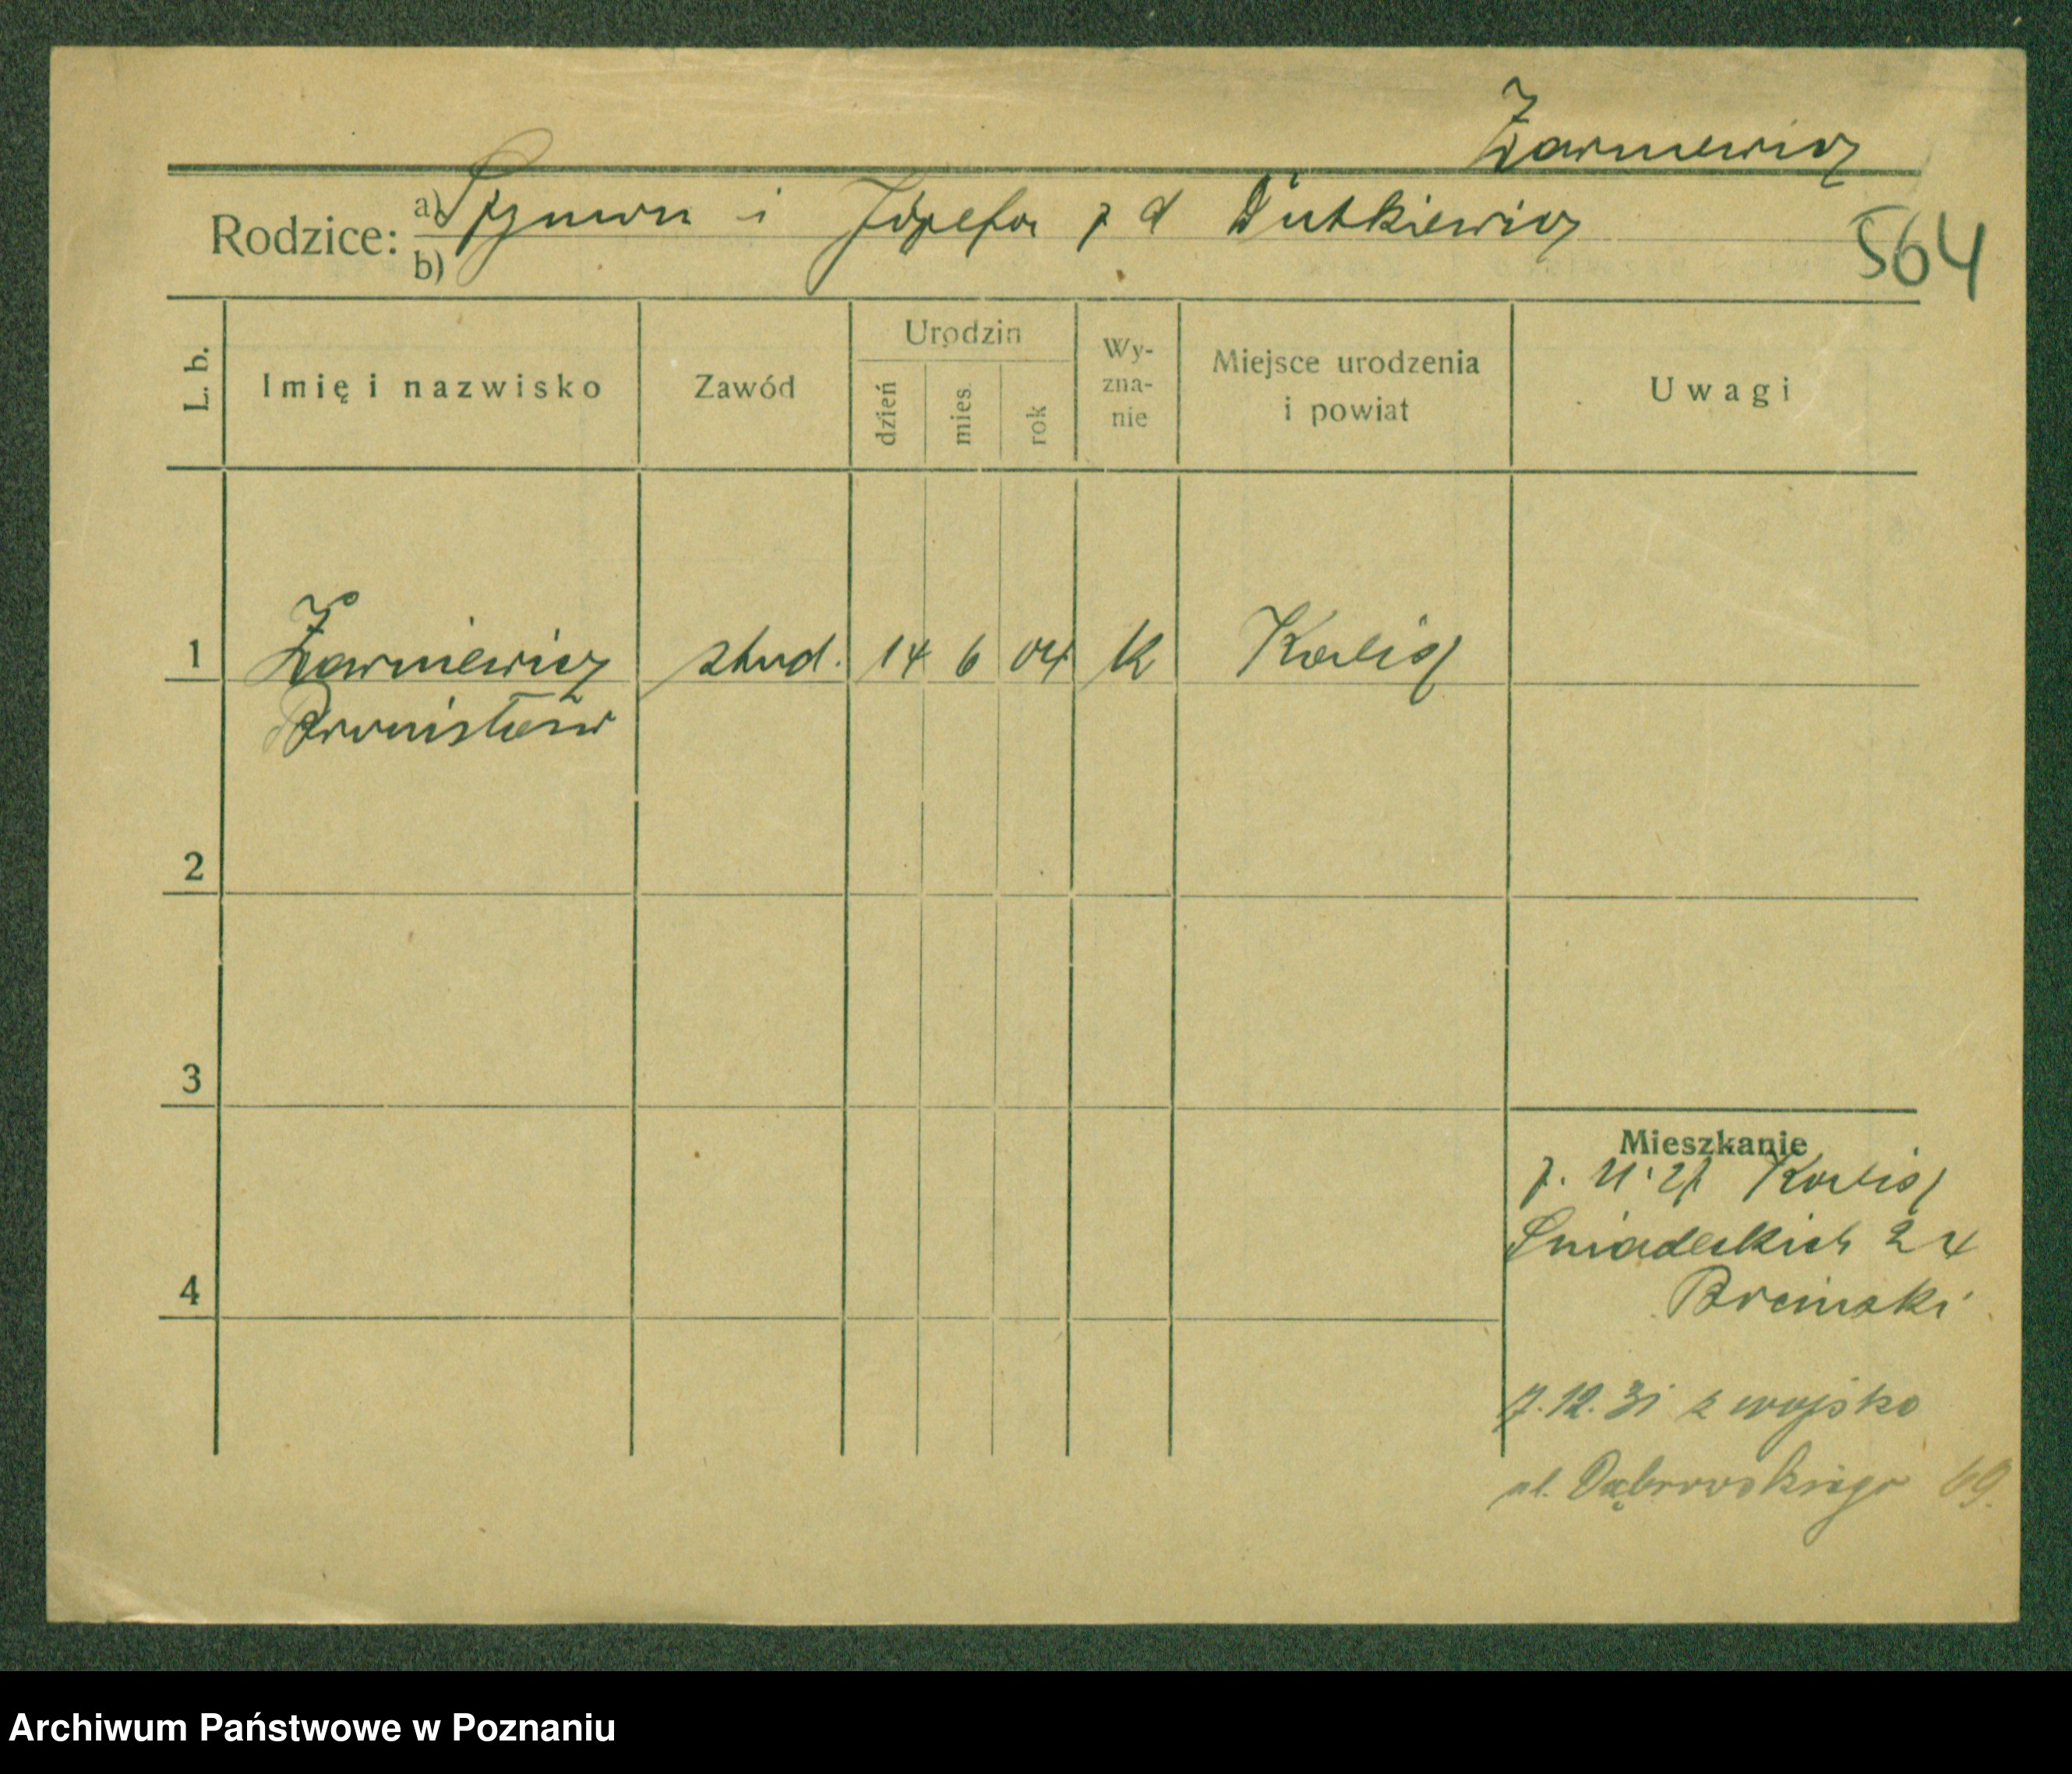 Żarniewicz
Rodzice: a) Szymon i Józefa z d Dutkiewicz
b)
564
L. b. Imię i nazwisko Zawód Urodzin dzień mies. rok Wy-zna-nie Miejsce urodzenia i powiat Uwagi
1 Żarniewicz stud. 14 6 04 k Kalisz
Bronisław
2
3
Mieszkanie
Kalisz
Śniadeckich 24
4
7.12.31 z wojska
ul. Dąbrowskiego 69.
Archiwum Państwowe w Poznaniu